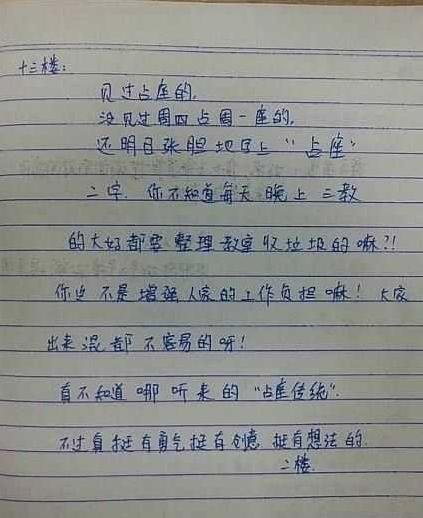 十三楼：
见过占座的，
没见过周四占周一座的，
还明目张胆地写上“占座”
二字．你不知道每天晚上三教
的大妈都要整理教室收垃圾的嘛?!
你这不是增强人家的工作负担嘛！大家
出来混都不容易的呀！
真不知道哪听来的“占座传统”．
不过真挺有勇气挺有创意挺有想法的．
二楼．